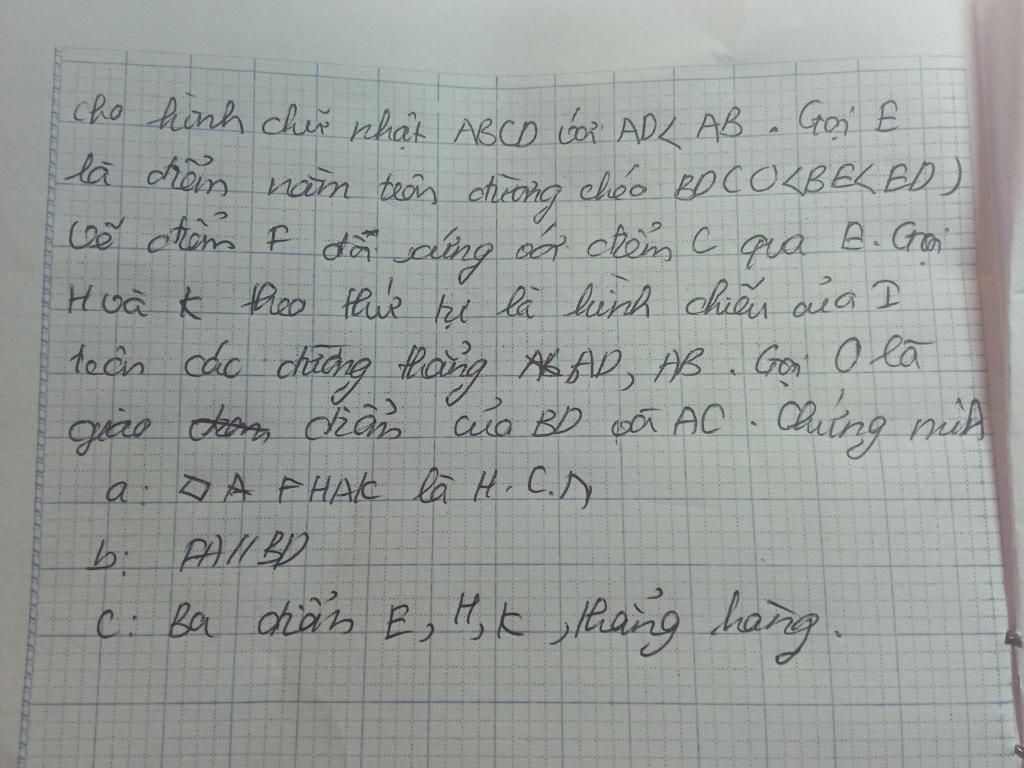 cho hình chữ nhật ABCD với AD < AB . Gọi E
là điểm nằm trên đường chéo BD (O<BE<ED)
Vẽ điểm F đối xứng với điểm C qua E. Gọi
H và K theo thứ tự là hình chiếu của I
trên các đường thẳng AD, AB . Gọi O là
giao điểm của BD với AC . Chứng minh
a: ▱ A FHAK là H.C.N
b: FA//BD
c: Ba điểm E, H, K , thẳng hàng.